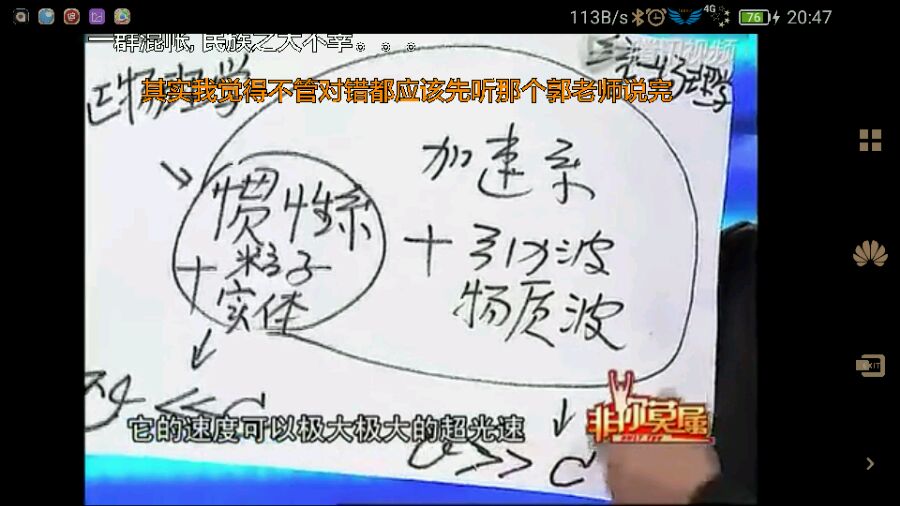 113B/s 4G 76 20:47
一群混帐，民族之大不幸。。。
腾讯视频
其实我觉得不管对错都应该先听那个郭老师说完
物理学
加速系
惯性系
+引力波
+粒子
物质波
实体
<< C
它的速度可以极大极大的超光速
非你莫属
v >> C
EXIT